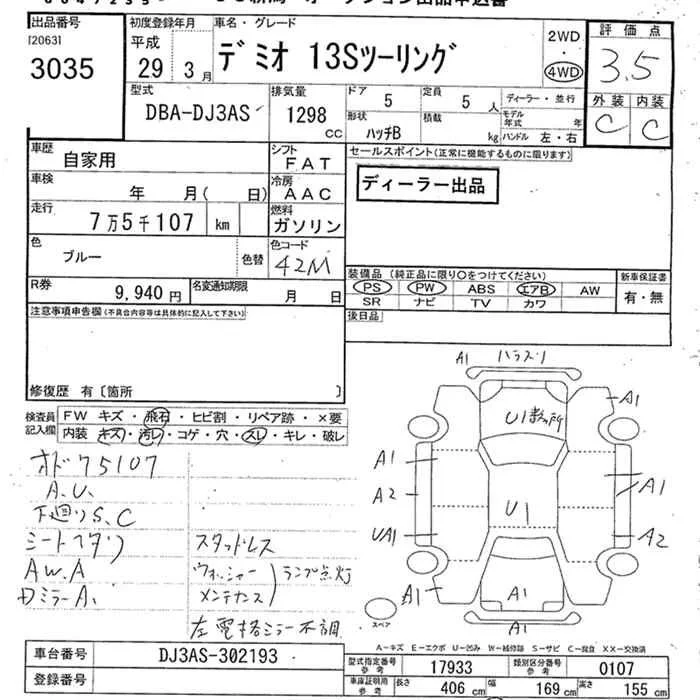 出品番号
[2063]
3035
初度登録年月
平成
29年 3月
車名・グレード
デミオ 13Sツーリング
2WD
・
4WD
評価点
3.5
外装 内装
C C
型式
DBA-DJ3AS
排気量
1298
CC
ドア 5
定員 5 人
ディーラー・並行
形状 ハッチB
積載 kg
モデル年式 年
ハンドル 左・右
車歴
自家用
シフト
FAT
セールスポイント(正常に機能するものに限ります)
ディーラー出品
車検
年 月( 日)
冷房
AAC
走行
7万5千107 km
燃料
ガソリン
色
ブルー
色替
色コード
42M
装備品(純正品に限り〇をつけてください)
新車保証書
PS PW ABS エアB AW
有・無
SR ナビ TV カワ
R券
9,940円
名変通知期限
月 日
後日品
注意事項申告欄(不具合内容等は具体的に記入して下さい)
修復歴 有〔箇所 〕
検査員
記入欄
FW キズ・飛石・ヒビ割・リペア跡・×要
内装 キズ・汚レ・コゲ・穴・スレ・キレ・破レ
オド75107
A.U.
下廻りS、C
シート
A.W.A
Dミラー A.
スタッドレス
ウォッシャー
メンテナンス
ランプ点灯
左電格ミラー不調
A1
A1
U1
A1
A2
UA1
U1
A1
A2
A1
A1
A1
A1
スペア
A−キズ E−エクボ U−凹み W−補修跡 S−サビ C−腐食 XX−交換済
車台番号
DJ3AS-302193
登録番号
型式指定番号
参考
17933
類別区分番号
参考
0107
車庫証明用
参考
長さ 406 cm
幅 169 cm
高さ 155 cm